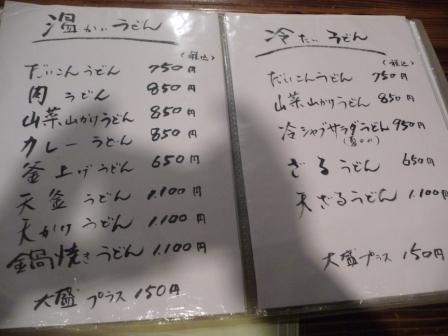 温かいうどん
(税込)
だいこんうどん 750円
肉うどん 850円
山菜山かけうどん 850円
カレーうどん 850円
釜上げうどん 650円
天釜うどん 1.100円
天かけうどん 1.100円
鍋焼きうどん 1.100円
大盛プラス 150円
冷たいうどん
(税込)
だいこんうどん 750円
山菜山かけうどん 850円
冷シャブサラダうどん 950円
ざるうどん 650円
天ざるうどん 1.100円
大盛プラス 150円